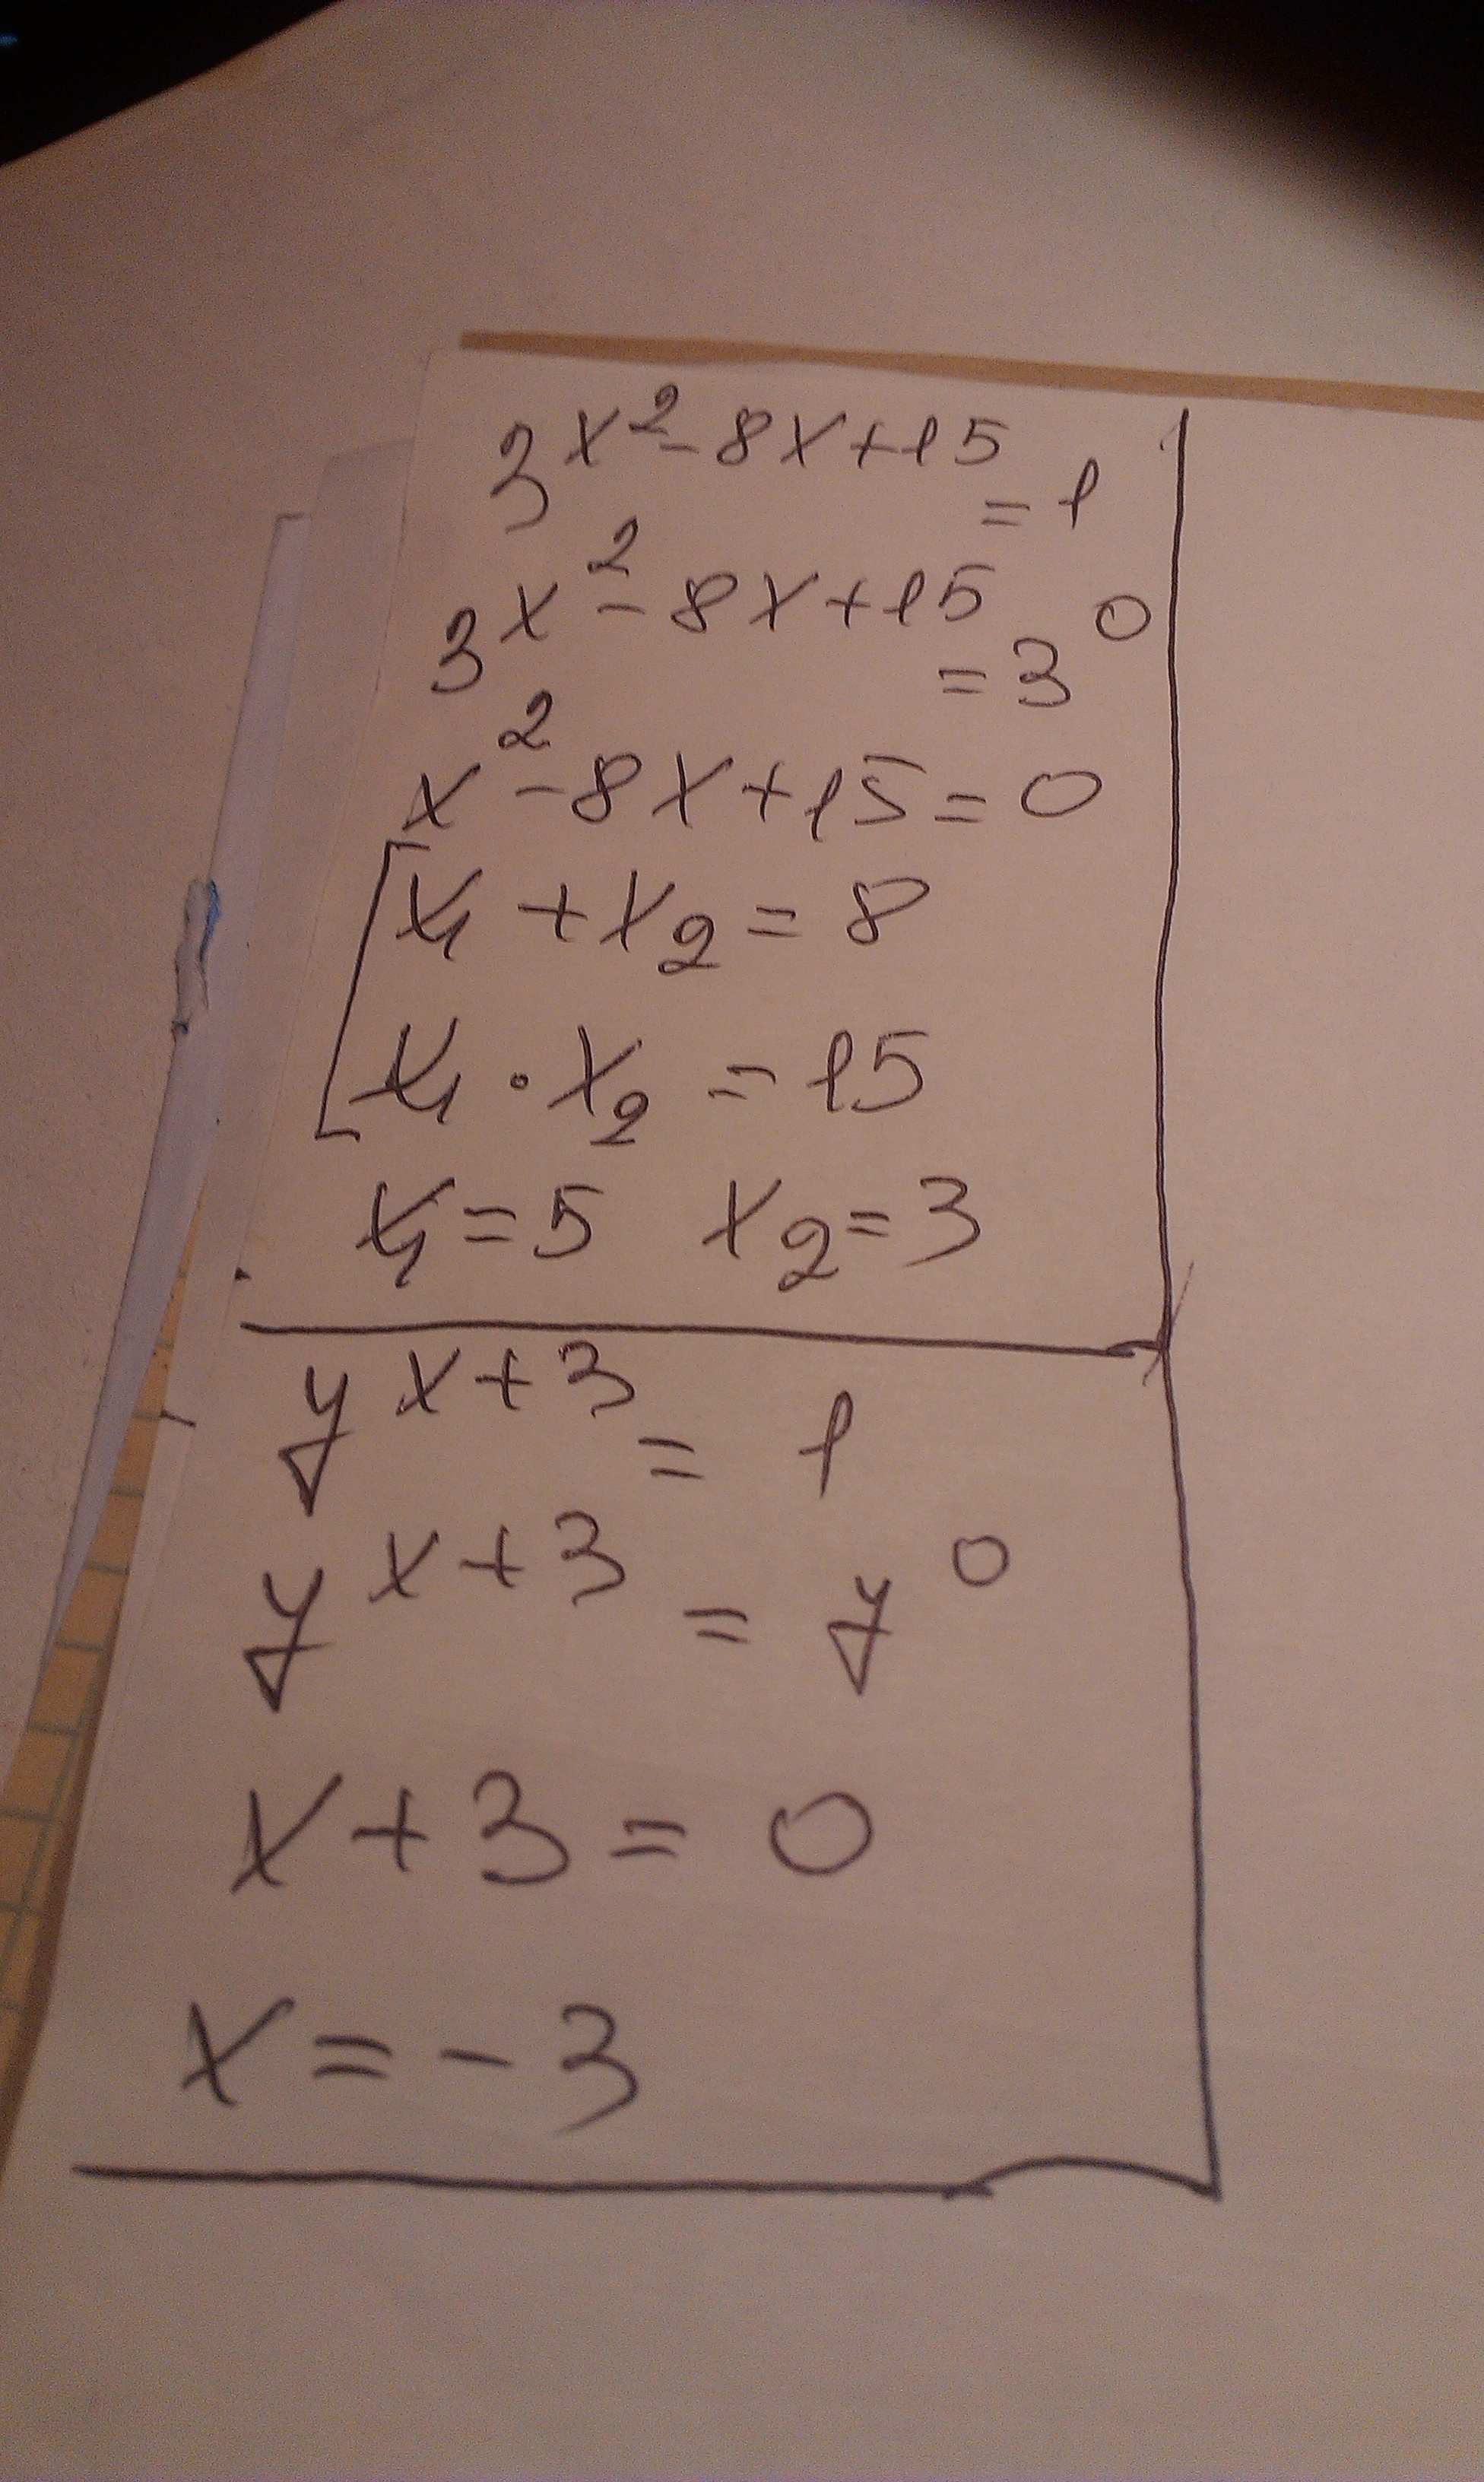 3^{x^2-8x+15} = 1
3^{x^2-8x+15} = 3^0
x^2-8x+15=0
x_1+x_2=8
x_1·x_2=15
x_1=5 x_2=3
y^{x+3} = 1
y^{x+3} = y^0
x+3=0
x=-3